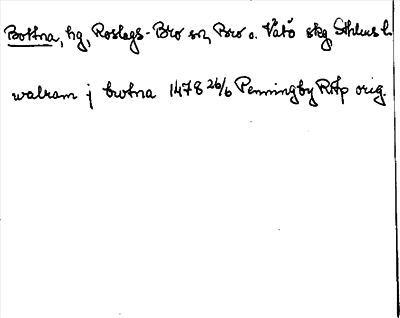 Bottna, hg, Roslags-Bro sn, Bro o. Vätö skg Sthlms l.
walram j botna 1478 26/6 Penningby RAp orig.